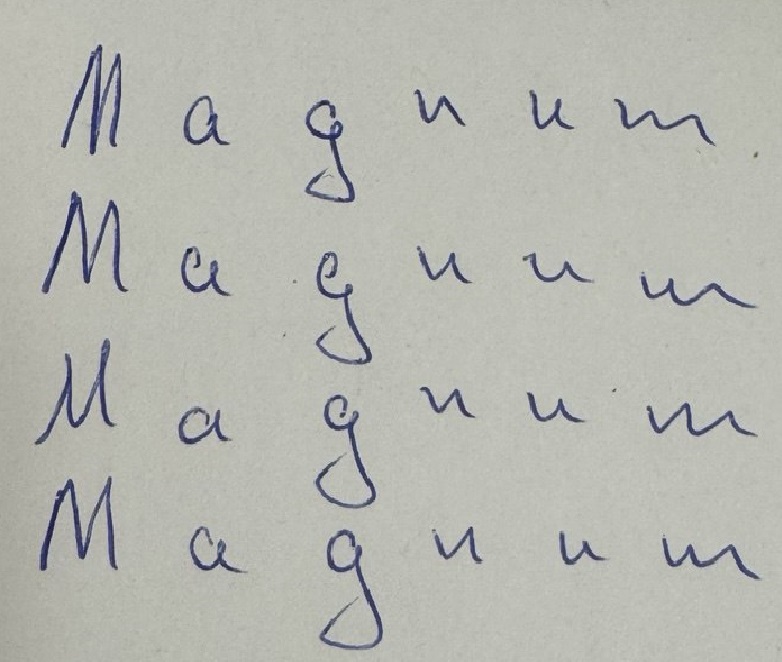 M a g n u m
M a g n u m
M a g n u m
M a g n u m